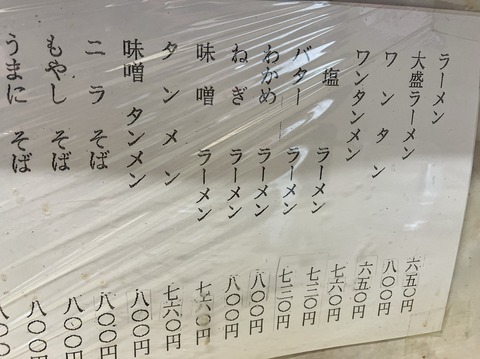 ラーメン 六五〇円
大盛ラーメン 八〇〇円
ワンタン 六五〇円
ワンタンメン 七六〇円
塩ラーメン 七二〇円
バターラーメン 七二〇円
わかめラーメン 八〇〇円
ねぎラーメン 八〇〇円
味噌ラーメン 七六〇円
タンメン 七六〇円
味噌タンメン 八〇〇円
ニラそば 八〇〇円
もやしそば 八〇〇円
うまにそば 八〇〇円